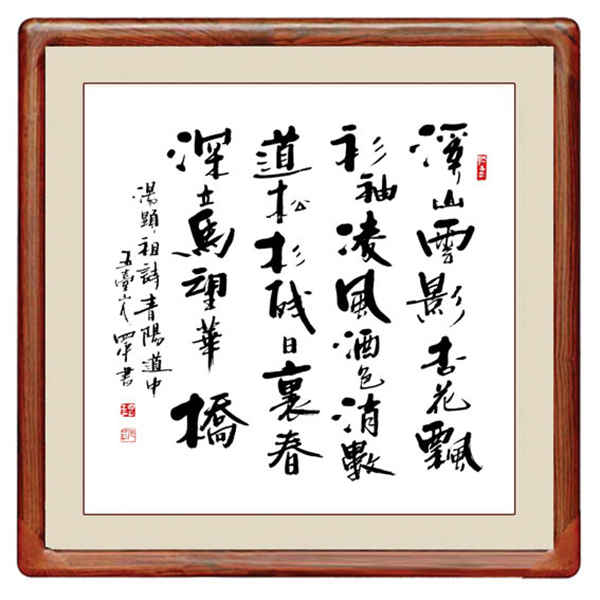 溪山雲影杏花飄
衫袖凌風酒色消數
道松杉殘日裏春
深立馬望華橋
湯顯祖詩青陽道中
五臺山人書